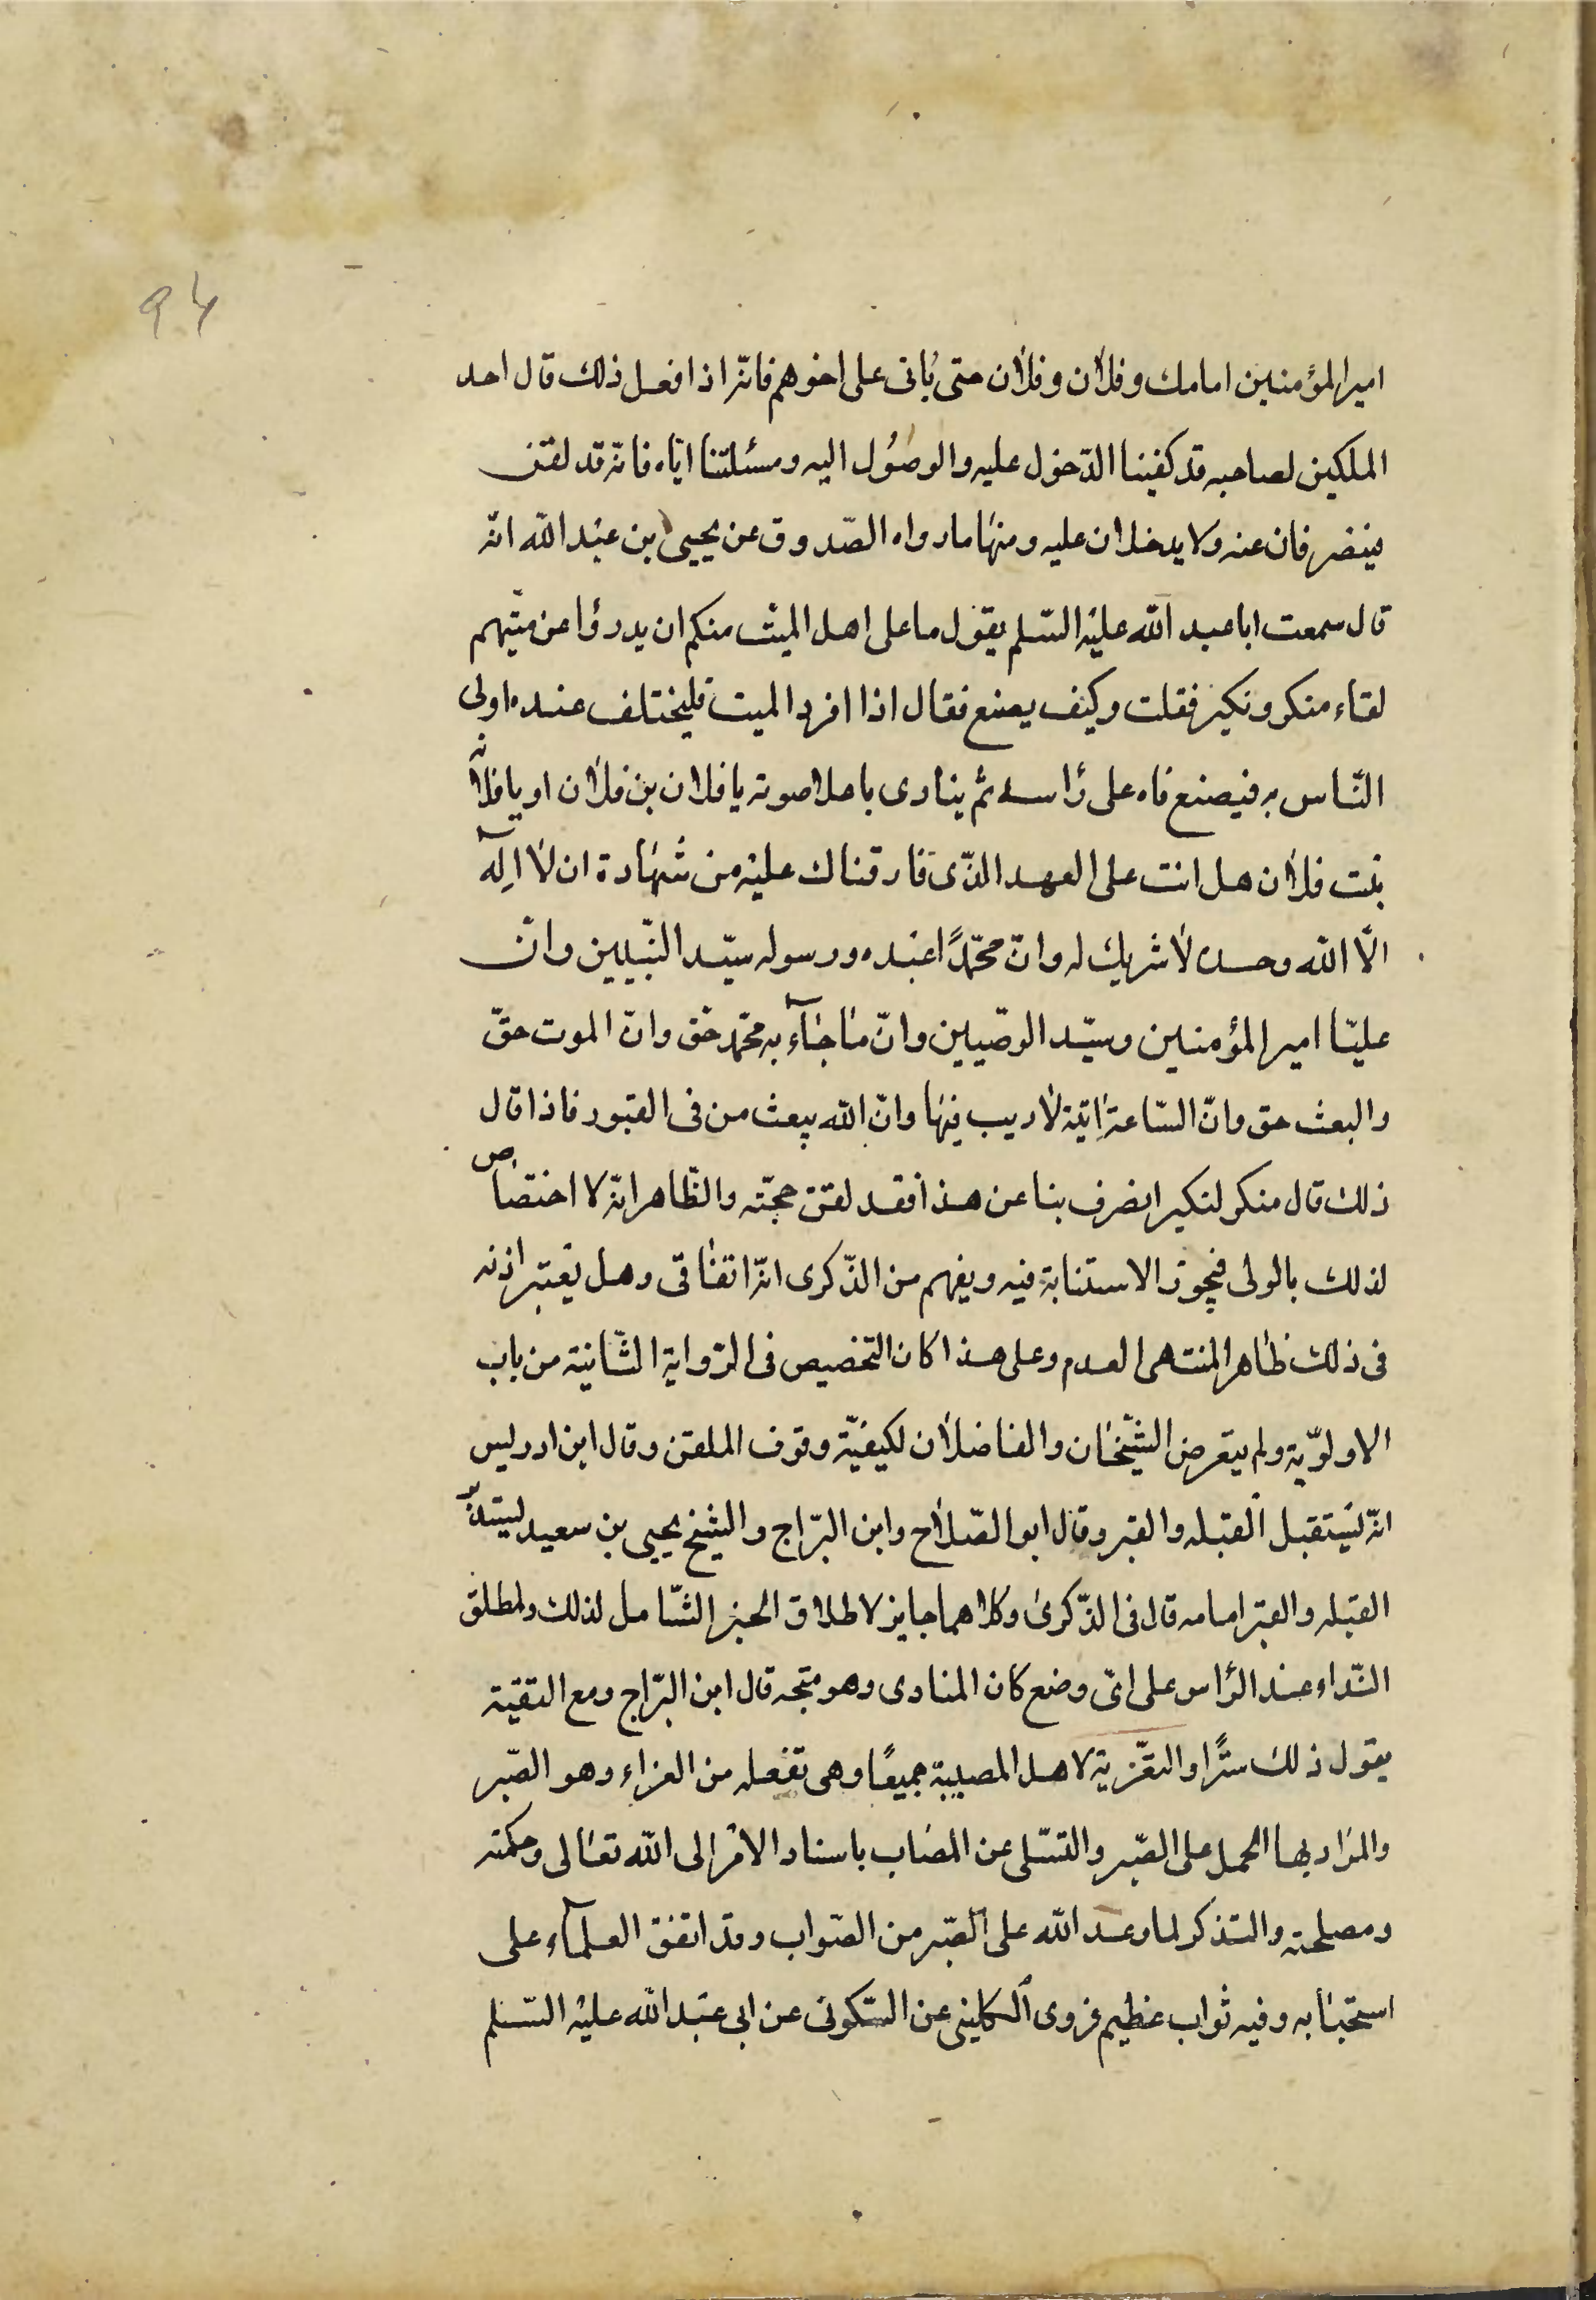 ٩٤
امير المؤمنين امامك وفلان وفلان حتى ياتى على اخرهم فانّه اذا فعل ذلك قال احد
الملكين لصاحبه قد كفينا الدّخول عليه والوصُول اليه ومسئلتنا ايّاه فانّه قد لقّن
فينصرفان عنه ولا يدخلان عليه ومنهَا ما رواه الصّدوق عن يحيى بن عبْد اللّه انّه
قال سمعت ابا عبد اللّه عليْه السّلم يقول ما على اهل الميّت منكم ان يدرؤا عن ميّتهم
لقاء منكر ونكير فقلت وكيف يصنع فقال اذا افرد الميت فليختلف عنده اولى
النّاس به فيصنع فاه على رَاسه ثم ينادى باعلا صوته يا فلان بن فلان او يا فلانه
بنت فلان هل انت على العهد الذّى فارقناك عليْه من شهَادة ان لا الِه
الّا اللّه وحده لا شريك له وانّ محمّدًا عبْده ورسوله سيّد النّبيين وانّ
عليّا امير المؤمنين وسيّد الوصّيين وانّ مَا جَاء به محمّد حَق وانّ الموت حقّ
والبعث حق وانّ السّاعة اتيَة لا ريب فيهَا وانّ اللّه يبعث من فى القبور فاذا قال
ذلك قال منكر لنكير انصرف بنا عن هذا فقد لقّن حجّته والظّاهر انّه لا اختصَاص
لذلك بالولى فيجوز الاستنابة فيه ويفهم من الذّكرى انّه اتفَاقى وهل يَعتبر اذنه
فى ذلك ظَاهر المنتهى العدم وعلى هذا كان التخصيص فى الرّواية الثّانية من باب
الاولوّية ولم يتعرض الشّيخَان والفاضلان لكيفيّة وقوف الملقن وقال ابن ادريس
انّه يَستقبل القبله والقبر وقال ابو الصّلاح وابن البرّاج والشيخ يحيى بن سعيد ليستدبر
القبله والقبر امامه قال فى الذّكرى وكلاهما جايز لاطلاق الخبر الشّامل لذلك ولمطلق
النّداء عند الرّاس على اىّ وضع كان المنادى وهو متجه قال ابن البرّاج ومع التقيّة
يقول ذلك سرًّا والتعّزية لاهل المصيبة جميعًا وهى تفعله من العزاء وهو الصّبر
والمرَاد بها الحمل على الصّبر والتسّلى عن المصَاب باسناد الامْر الى اللّه تعَالى وحكمته
ومصلحته والتذكر لما وعد اللّه على الصّبر من الثواب وقد اتفق العلمآء على
استحبَابه وفيه ثواب عظيم فروى الكلينى عن السّكونى عن ابى عبْد اللّه عليْه السّلم